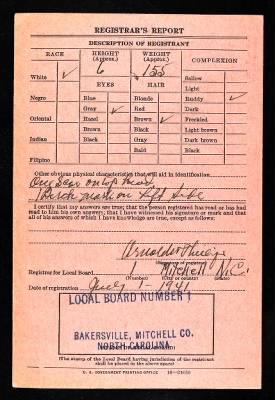 REGISTRAR'S REPORT
DESCRIPTION OF REGISTRANT
RACE HEIGHT (Approx.) WEIGHT (Approx.) COMPLEXION
White ✓ 6 155 Sallow
Light
EYES HAIR Ruddy ✓
Negro Blue Blonde Dark
Gray ✓ Red Freckled
Oriental Hazel Brown ✓ Light brown
Brown Black Dark brown
Indian Black Gray Black
Bald
Filipino
Other obvious physical characteristics that will aid in identification
One Scar on top Head
Birth mark on left side
I certify that my answers are true; that the person registered has read or has had read to him his own answers; that I have witnessed his signature or mark and that all of his answers of which I have knowledge are true, except as follows:
(Signature of registrar)
Registrar for Local Board 1 Mitchell N.C.
(Number) (City or county) (State)
Date of registration July 1 - 1941
LOCAL BOARD NUMBER 1
BAKERSVILLE, MITCHELL CO.
NORTH CAROLINA
(The stamp of the Local Board having jurisdiction of the registrant shall be placed in the above space)
U. S. GOVERNMENT PRINTING OFFICE